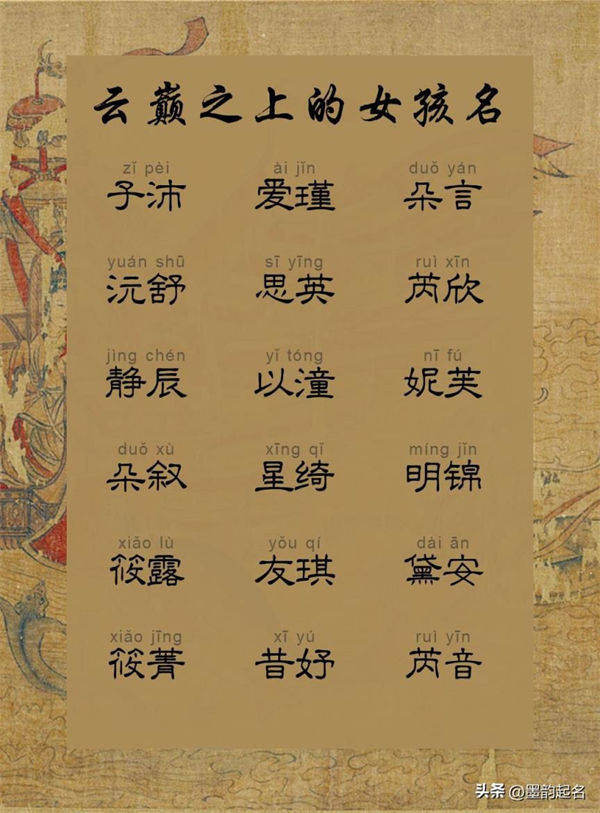 云巅之上的女孩名
zǐ pèi ài jǐn duǒ yán
子沛 爱瑾 朵言
yuán shū sī yīng ruì xīn
沅舒 思英 芮欣
jìng chén yǐ tóng nī fú
静辰 以潼 妮芙
duǒ xù xīng qǐ míng jǐn
朵叙 星绮 明锦
xiǎo lù yǒu qí dài ān
筱露 友琪 黛安
xiǎo jīng xī yú ruì yīn
筱菁 昔妤 芮音
头条 @墨韵起名